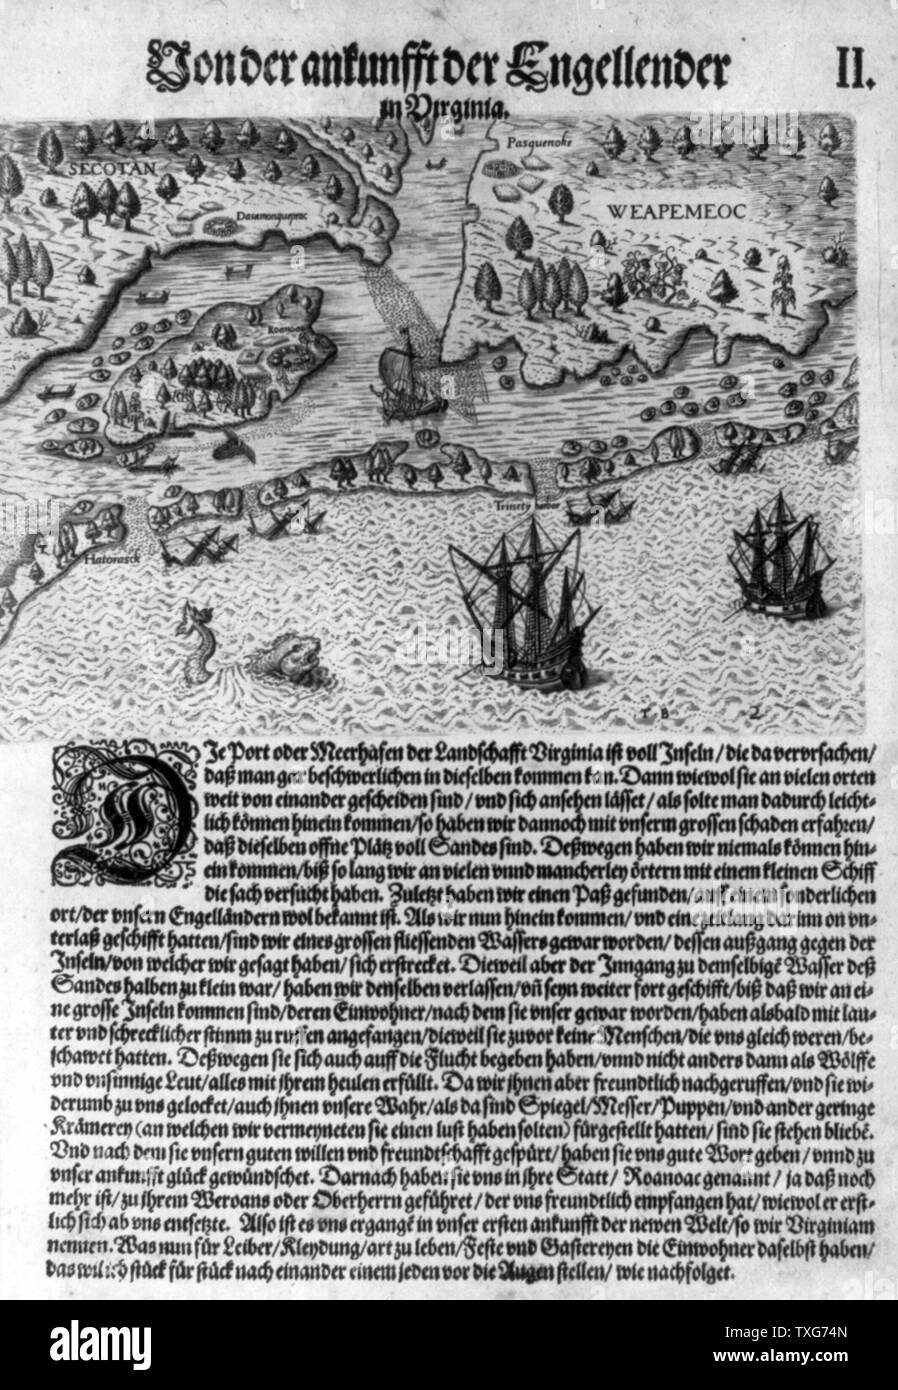 Von der ankunfft der Engellender
II.
in Virginia.
Pasquenoke
SECOTAN
WEAPEMEOC
Dasamonquepeuc
Roanoac
Trinety harbor
Hatorasck
T B
2
DJe Port oder Meerhafen der Landschafft Virginia ist voll Jnseln / die da vervrsachen /
daß man gar beschwerlichen in dieselben kommen kan. Dann wiewol sie an vielen orten
weit von einander gescheiden sind / vnd sich ansehen lässet / als solte man dadurch leicht-
lich können hinein kommen / so haben wir dannoch mit vnserm grossen schaden erfahren /
daß dieselben offne Plätz voll Sandes sind. Deßwegen haben wir niemals können hin-
ein kommen / biß so lang wir an vielen vnnd mancherley örtern mit einem kleinen Schiff
die sach versucht haben. Zuletzt haben wir einen Paß gefunden / auff einem sonderlichen
ort / der vnsern Engelländern wol bekannt ist. Als wir nun hinein kommen / vnd ein zeitlang darinn on vn-
terlaß geschifft hatten / sind wir eines grossen fliessenden Wassers gewar worden / dessen außgang gegen der
Jnseln / von welcher wir gesagt haben / sich erstrecket. Dieweil aber der Jnngang zu demselbigē Wasser deß
Sandes halben zu klein war / haben wir denselben verlassen / vñ seyn weiter fort geschifft / biß daß wir an ei-
ne grosse Jnseln kommen sind / deren Einwohner / nach dem sie vnser gewar worden / haben alsbald mit lau-
ter vnd schrecklicher stimm zu ruffen angefangen / dieweil sie zuvor keine Menschen / die vns gleich weren / be-
schawet hatten. Deßwegen sie sich auch auff die Flucht begeben haben / vnnd nicht anders dann als Wölffe
vnd vnsinnige Leut / alles mit jhrem heulen erfüllt. Da wir jhnen aber freundtlich nachgeruffen / vnd sie wi-
derumb zu vns gelocket / auch jhnen vnsere Wahr / als da sind Spiegel / Messer / Puppen / vnd ander geringe
Krämerey (an welchen wir vermeyneten sie einen lust haben solten) fürgestellt hatten / sind sie stehen bliebē.
Vnd nach dem sie vnsern guten willen vnd freundtschafft gespürt / haben sie vns gute Wort geben / vnnd zu
vnser ankunfft glück gewündschet. Darnach haben sie vns in jhre Statt / Roanoac genannt / ja daß noch
mehr ist / zu jhrem Weroans oder Oberherrn geführet / der vns freundtlich empfangen hat / wiewol er erst-
lich sich ab vns entsetzte. Also ist es vns ergangē in vnser ersten ankunfft der newen Welt / so wir Virginiam
nennen. Was nun für Leiber / Kleydung / art zu leben / Feste vnd Gastereyen die Einwohner daselbst haben /
das wil ich stück für stück nach einander einem jeden vor die Augen stellen / wie nachfolget.
alamy
Image ID: TXG74N
www.alamy.com